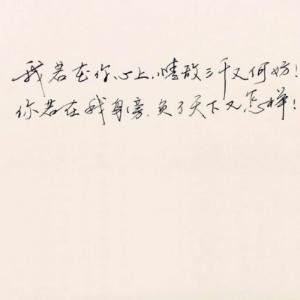 我若在你心上.情敌三千又何妨!
你若在我身旁.负了天下又怎样!